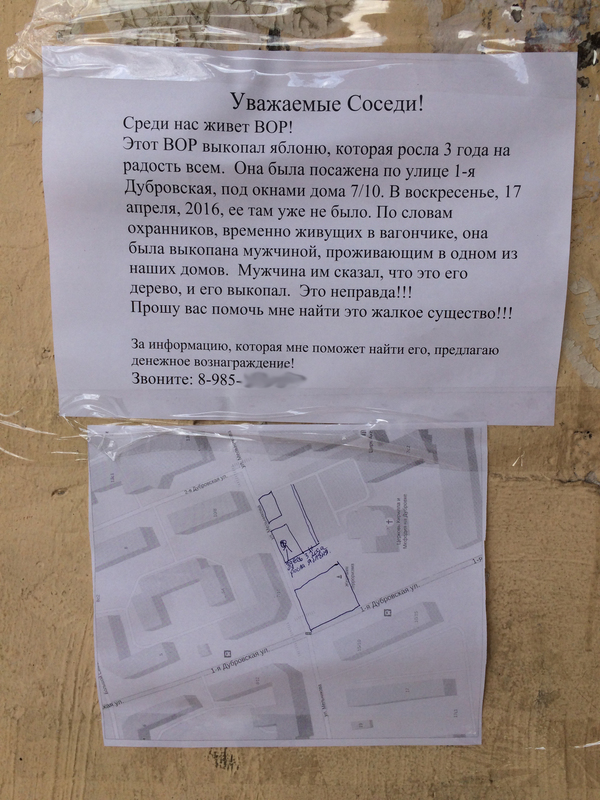 Уважаемые Соседи!
Среди нас живет ВОР!
Этот ВОР выкопал яблоню, которая росла 3 года на
радость всем. Она была посажена по улице 1-я
Дубровская, под окнами дома 7/10. В воскресенье, 17
апреля, 2016, ее там уже не было. По словам
охранников, временно живущих в вагончике, она
была выкопана мужчиной, проживающим в одном из
наших домов. Мужчина им сказал, что это его
дерево, и его выкопал. Это неправда!!!
Прошу вас помочь мне найти это жалкое существо!!!
За информацию, которая мне поможет найти его, предлагаю
денежное вознаграждение!
Звоните: 8-985-
2-я Дубровская ул.
росла яблоня
1-я Дубровская ул.
1-я Дубровская ул.
кая ул.